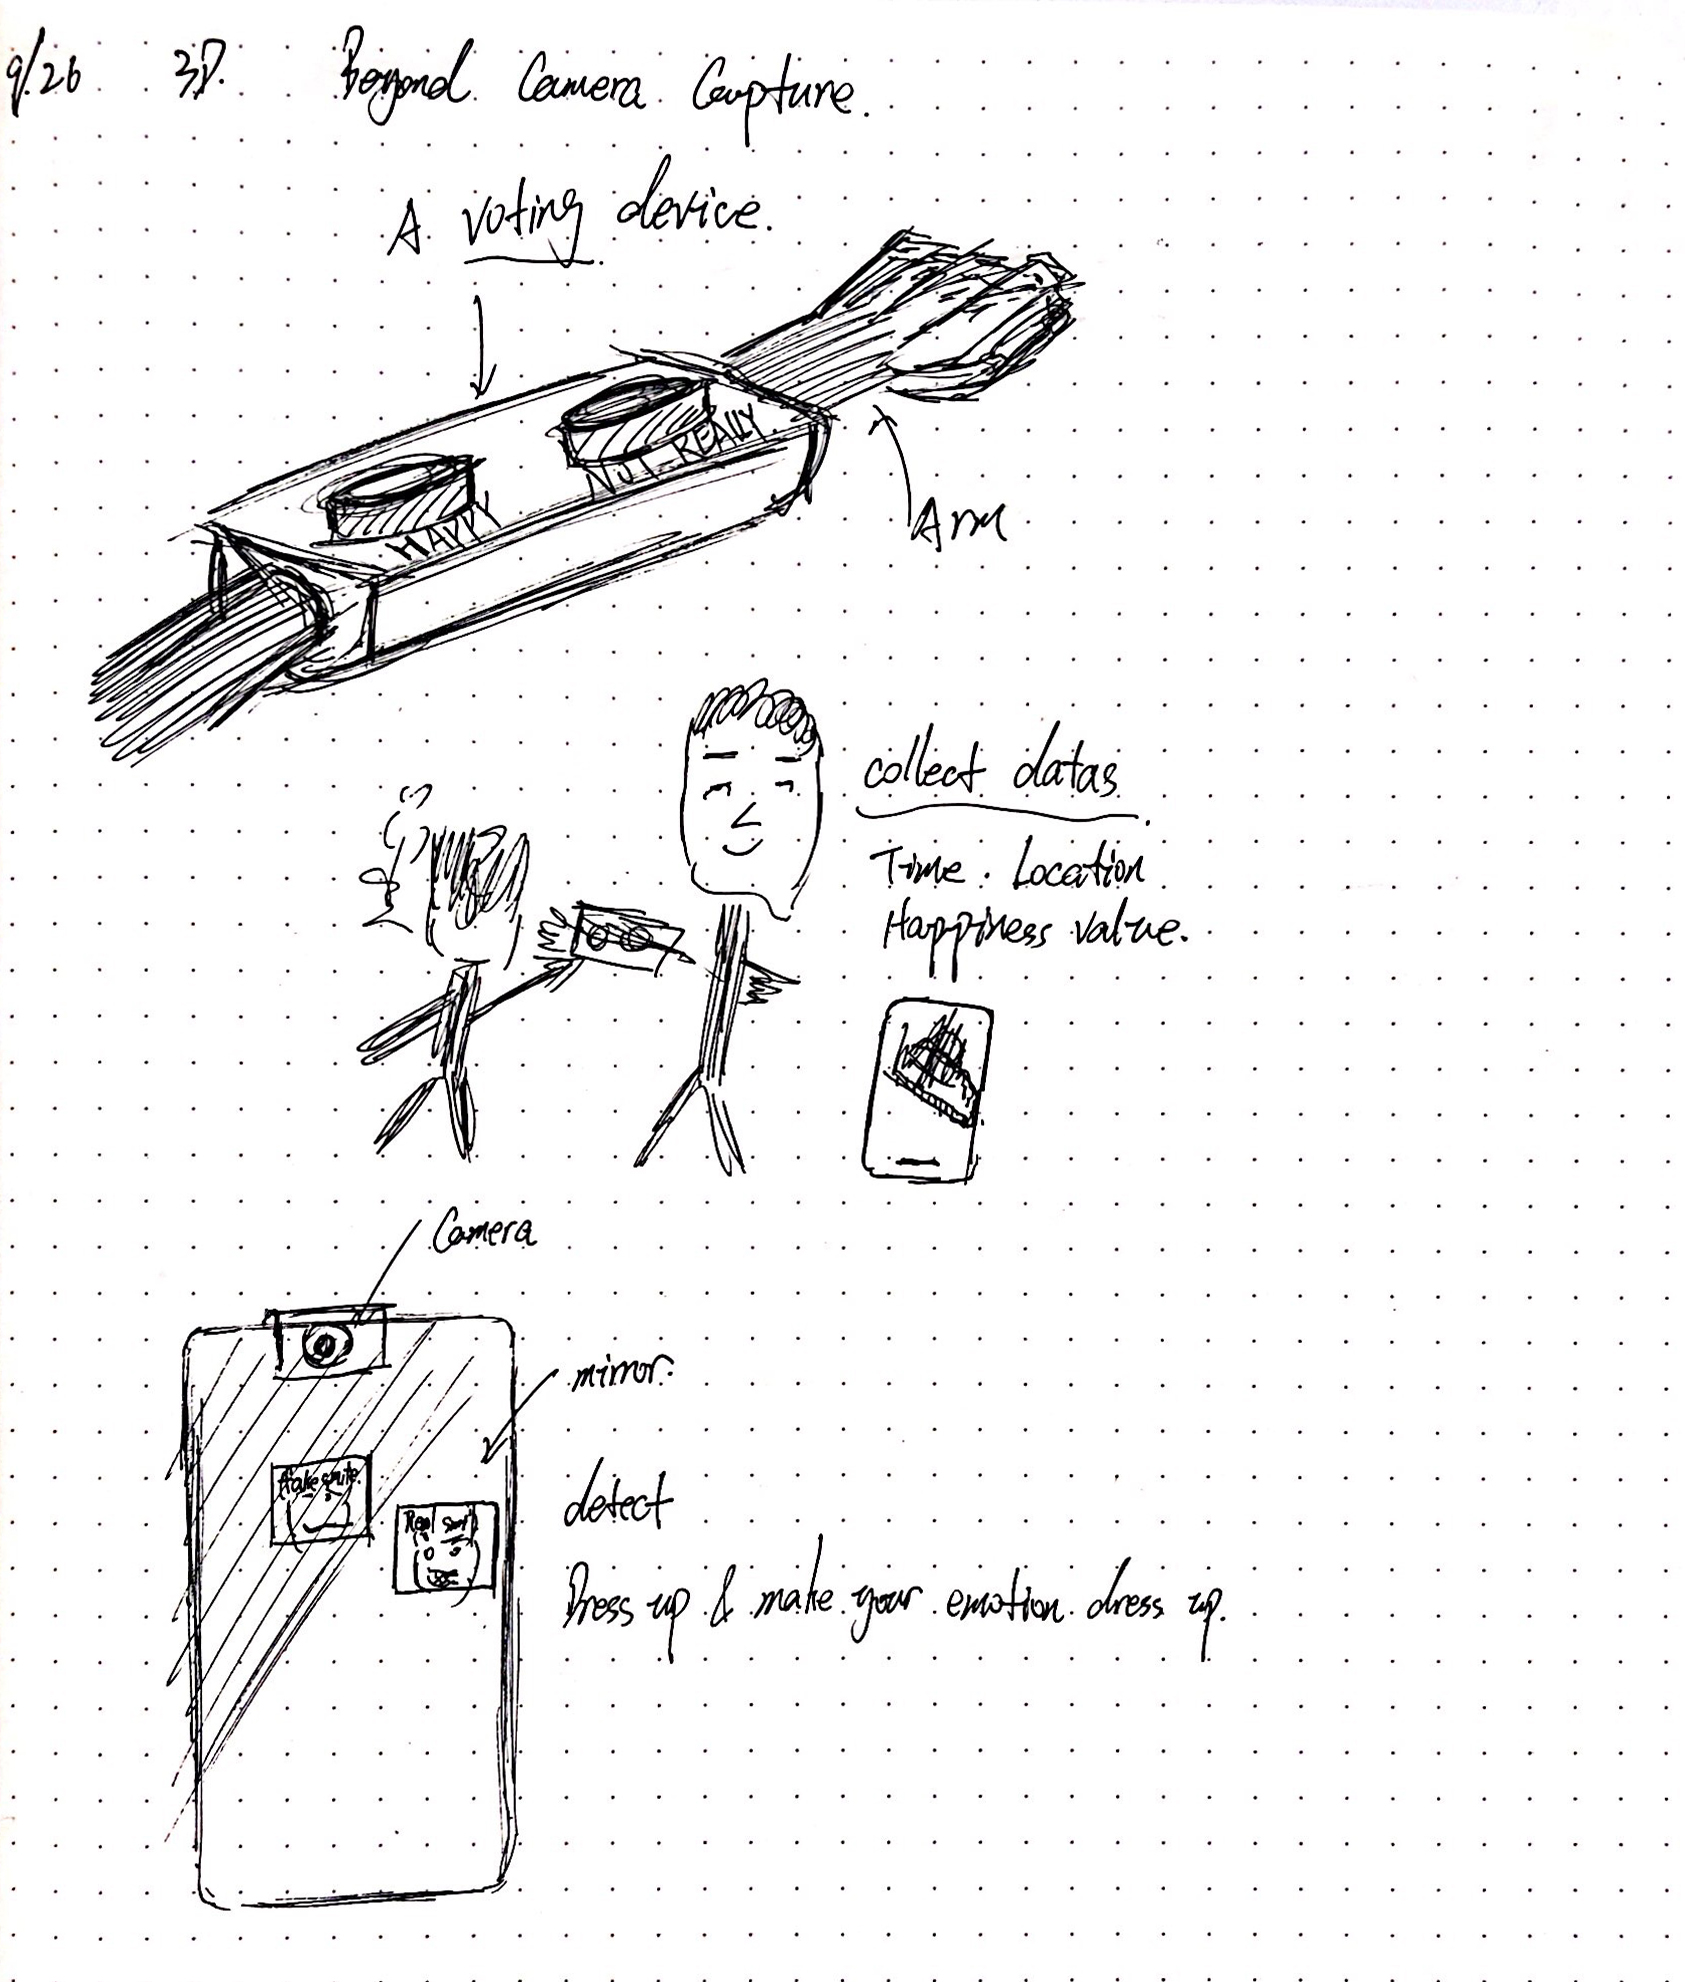 9/26 3D. Beyond Camera Capture.
A voting device.
NOT REALLY
HAPPY
Arm
collect datas
Time. Location
Happiness value.
Camera
mirror.
fake smile.
Real smile
detect
Dress up & make your emotion dress up.